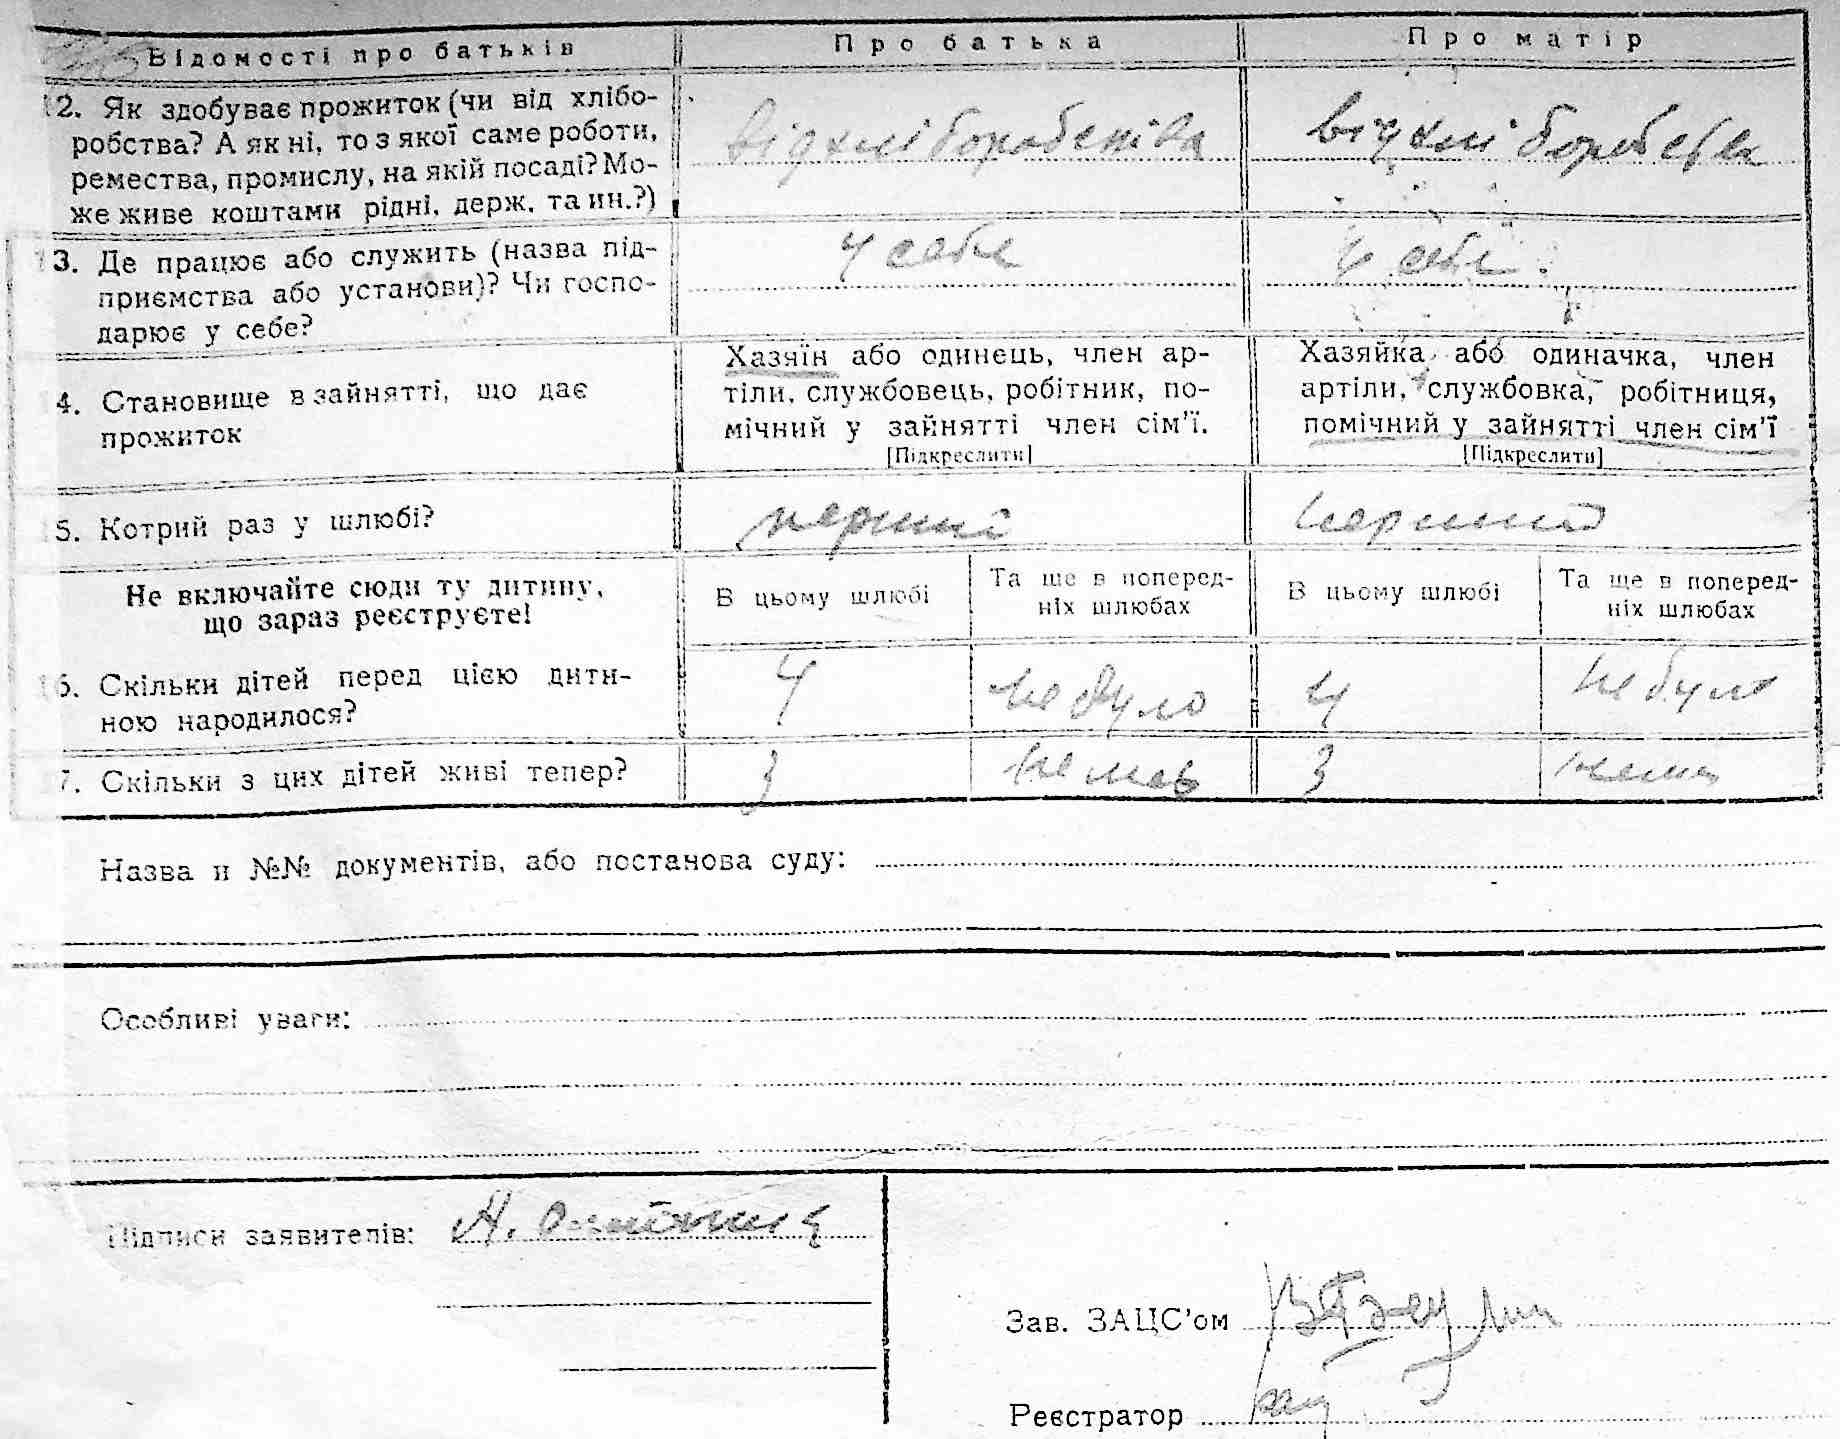 Відомості про батьків Про батька Про матір
12. Як здобуває прожиток (чи від хлібо-
робства? А як ні, то з якої саме роботи,
ремества, промислу, на якій посаді? Мо-
же живе коштами рідні, держ. та ин.?)
від хліборобства
від хліборобства
13. Де працює або служить (назва під-
приємства або установи)? Чи госпо-
дарює у себе?
у себе
у себе
14. Становище в зайнятті, що дає
прожиток
Хазяїн або одинець, член ар-
тіли, службовець, робітник, по-
мічний у зайнятті член сім'ї.
[Підкреслити]
Хазяйка або одиначка, член
артіли, службовка, робітниця,
помічний у зайнятті член сім'ї
[Підкреслити]
15. Котрий раз у шлюбі?
перший
перший
Не включайте сюди ту дитину,
що зараз реєструєте!
В цьому шлюбі
Та ще в поперед-
ніх шлюбах
В цьому шлюбі
Та ще в поперед-
ніх шлюбах
16. Скільки дітей перед цією дити-
ною народилося?
4 не було 4 не було
17. Скільки з цих дітей живі тепер?
3 немає 3 нема
Назва и №№ документів, або постанова суду:
Особливі уваги:
Підписи заявителів:
Зав. ЗАЦС'ом
Реєстратор